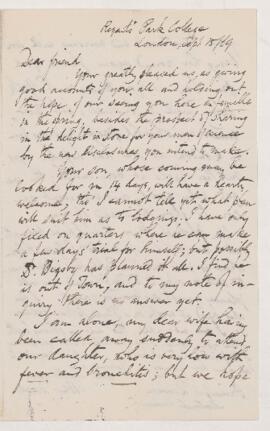 Regent's Park College
London, Sept 15/69
Dear friend
Yours greatly pleased us, as giving
good accounts of you all, and holding out
the hope of our seeing you here & the smells
in the Spring, besides the prospect of sharing
in the delight in store for your men of science
by the new disclosures you intend to make.
Your son, whose coming may be
looked for in 14 days, will have a hearty
welcome; tho' I cannot tell yet what plan
will suit him as to lodgings. I have only
fixed on quarters where he can make
a few days' trial for himself; but possibly
Dr. Bigsby has planned it all. I find he
is out of town, and to my note of in-
quiry there is no answer yet.
I am alone, my dear wife having
been called away suddenly to attend
our daughter, who is very low with
fever and bronchitis; but we hope